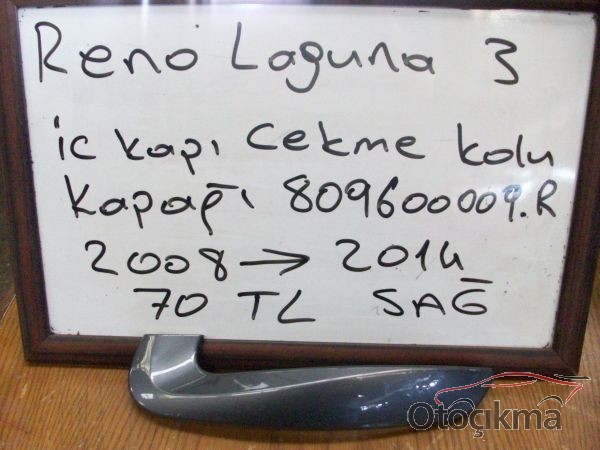 Reno Laguna 3
ic kapı cekme kolu
kapağı 809600009.R
2008 → 2014
70 TL SAĞ
Otoçıkma